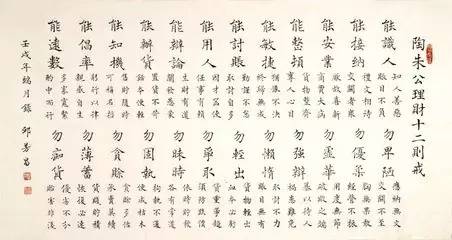 陶朱公理財十二則戒
能識人 知人善惡 賬目不負 勿卑陋 應納無文 交關不至
能接納 禮文相待 交關者衆 勿優柔 胸無果敢 經營不振
能安業 厭故喜新 商賈大病 勿虛華 用度無節 破敗之端
能整頓 貨物整齊 奪人心目 勿強辯 暴以待人 禍患難免
能敏捷 猶豫不決 終歸無成 勿懶惰 取討不力 賬目無有
能討賬 勤謹不怠 取討自多 勿輕出 貨物輕出 血本必虧
能用人 因才器使 任事有賴 勿爭取 貨重爭趨 須防跌價
能辯論 生財有道 闡發愚蒙 勿昧時 依時貯發 各有常道
能辦貨 置貨不苛 蝕本便輕 勿固執 拘執不通 便成枯木
能知機 售貯隨時 可稱名哲 勿貪賒 貪賒多估 承賣莫續
能倡率 躬行以律 親感自生 勿薄蓄 貨賤貯積 恢復必速
能速數 多寡寬緊 酌中而行 勿痴貨 優劣不分 貽害非淺
壬戌年端月錄 邱